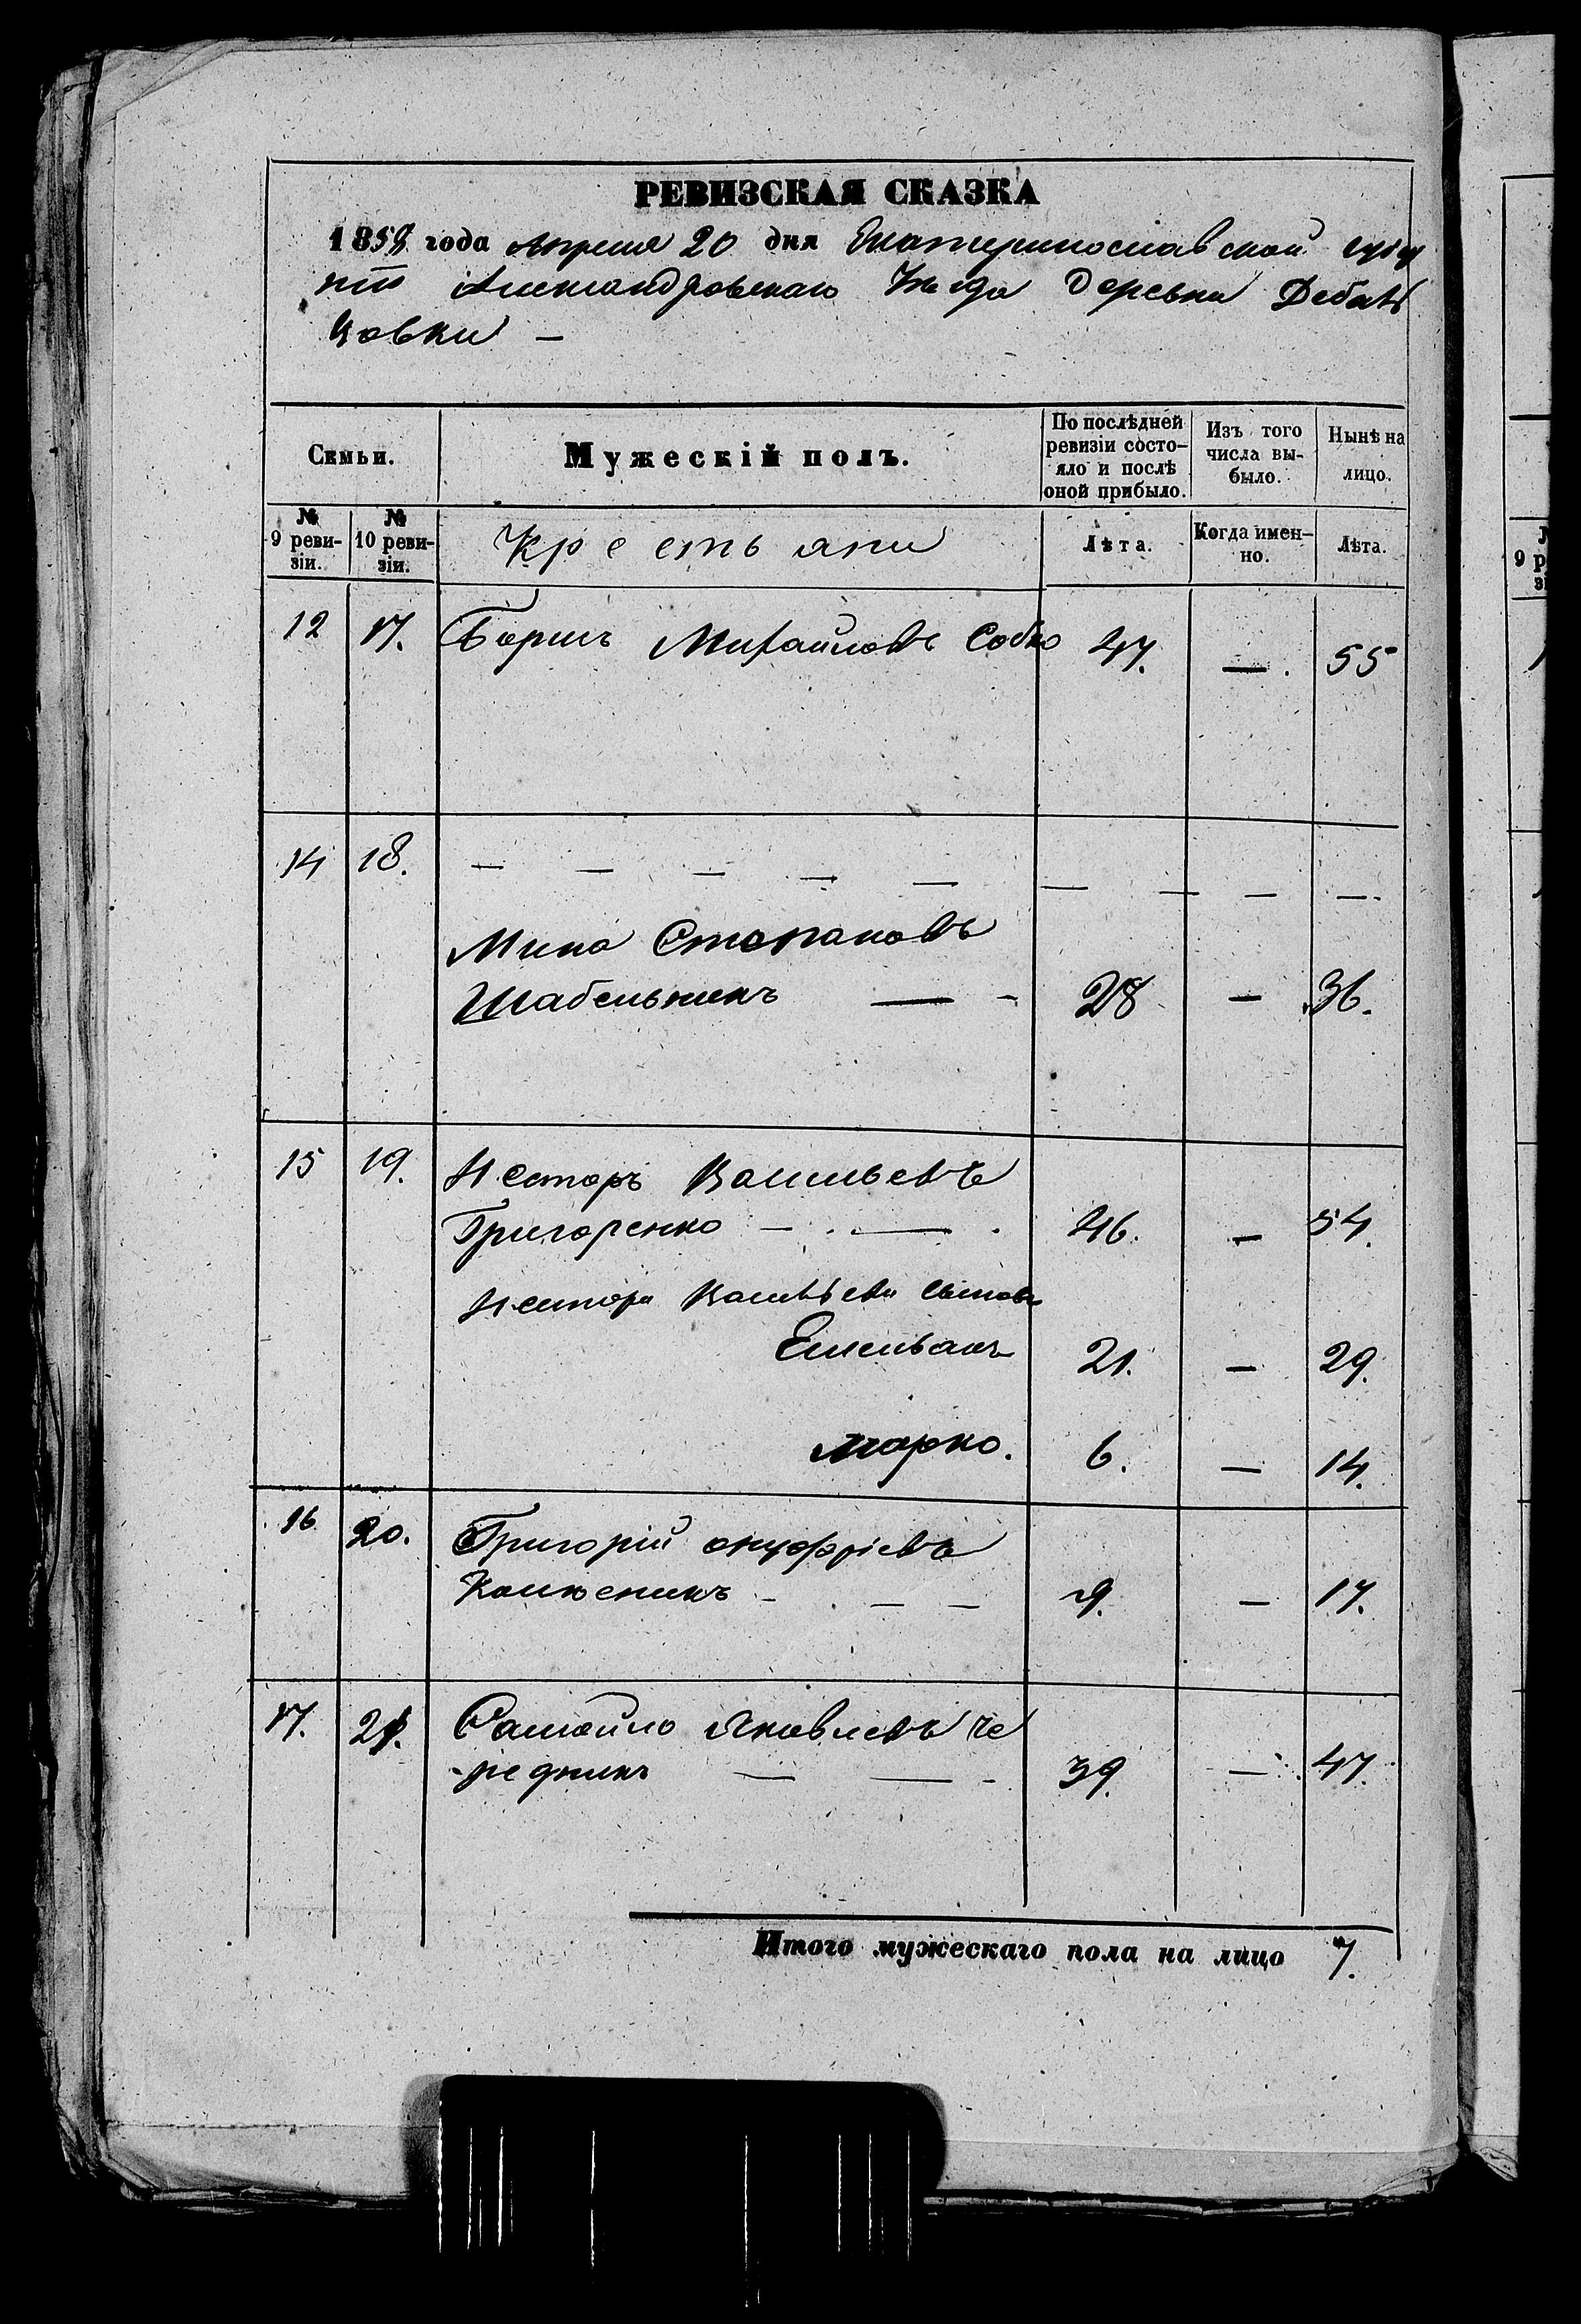 РЕВИЗСКАЯ СКАЗКА
1858 года Апреля 20 дня Екатеринославской губер
ніи Александровскаго Уезда деревни Дебаль
цовки —
Семьи.
Мужескій полъ.
По послѣдней ревизіи состо-яло и послѣ оной прибыло.
Изъ того числа вы-было.
Нынѣ на лицо.
№ 9 реви-зіи.
№ 10 реви-зіи.
Крестьяни
Лѣта.
Когда имен-но.
Лѣта.
12 17. Борисъ Михайловъ Собко 47. — . 55
14 18. — — — — — — — — —.
Мина Стопановъ
Шабельникъ — - 28 — 36.
15 19. Несторъ Васильевъ
Григоренко — . — . 46. — 54.
Нестора Васильева сыновья
Емельянъ 21. — 29.
Марко. 6. — 14.
16 20. Григорій онуфріевъ
Колюсникъ - . — — 9. — 17.
17. 21. Самойло Яковлевъ Че
-редникъ — — - 39. — 47.
Итого мужескаго пола на лицо 7.